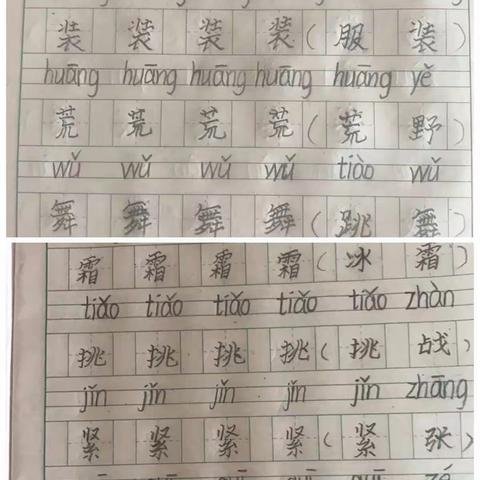 装 装 装 装（服 装）
huāng huāng huāng huāng huāng yě
荒 荒 荒 荒（荒 野）
wǔ wǔ wǔ wǔ tiào wǔ
舞 舞 舞 舞（跳 舞）
霜 霜 霜 霜（冰 霜）
tiǎo tiǎo tiǎo tiǎo tiǎo zhàn
挑 挑 挑 挑（挑 战）
jǐn jǐn jǐn jǐn jǐn zhāng
紧 紧 紧 紧（紧 张）